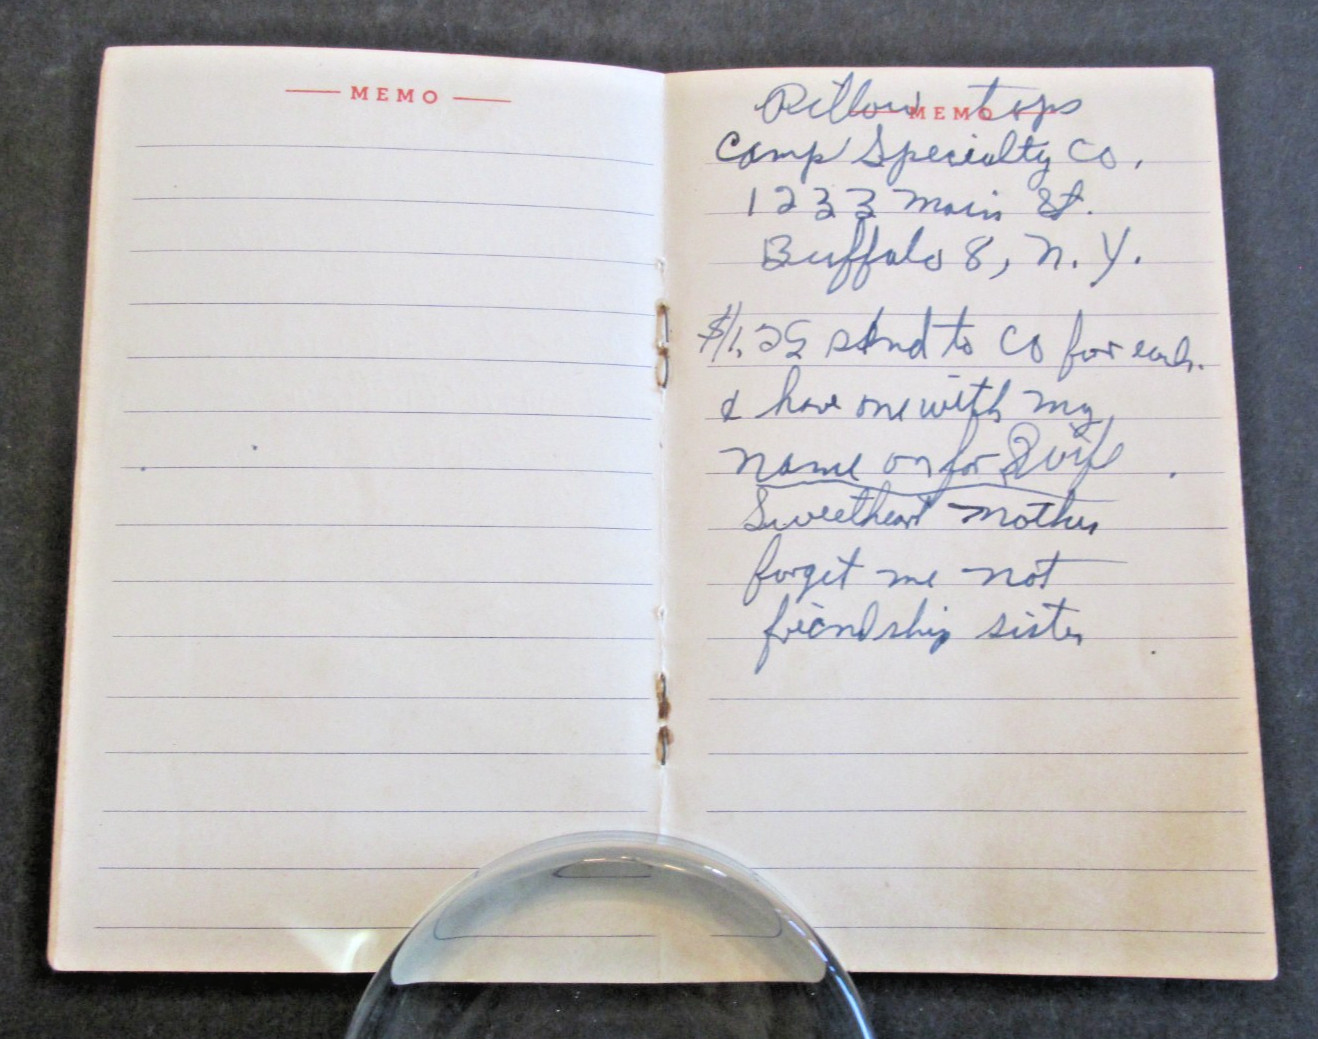 MEMO
Pillow tops
MEMO
Camp Specialty Co.
1233 Main St.
Buffalo 8, N.Y.
$1.25 send to Co for each.
I have one with my
name on for Wife
Sweetheart Mother
forget me not
friendship sister